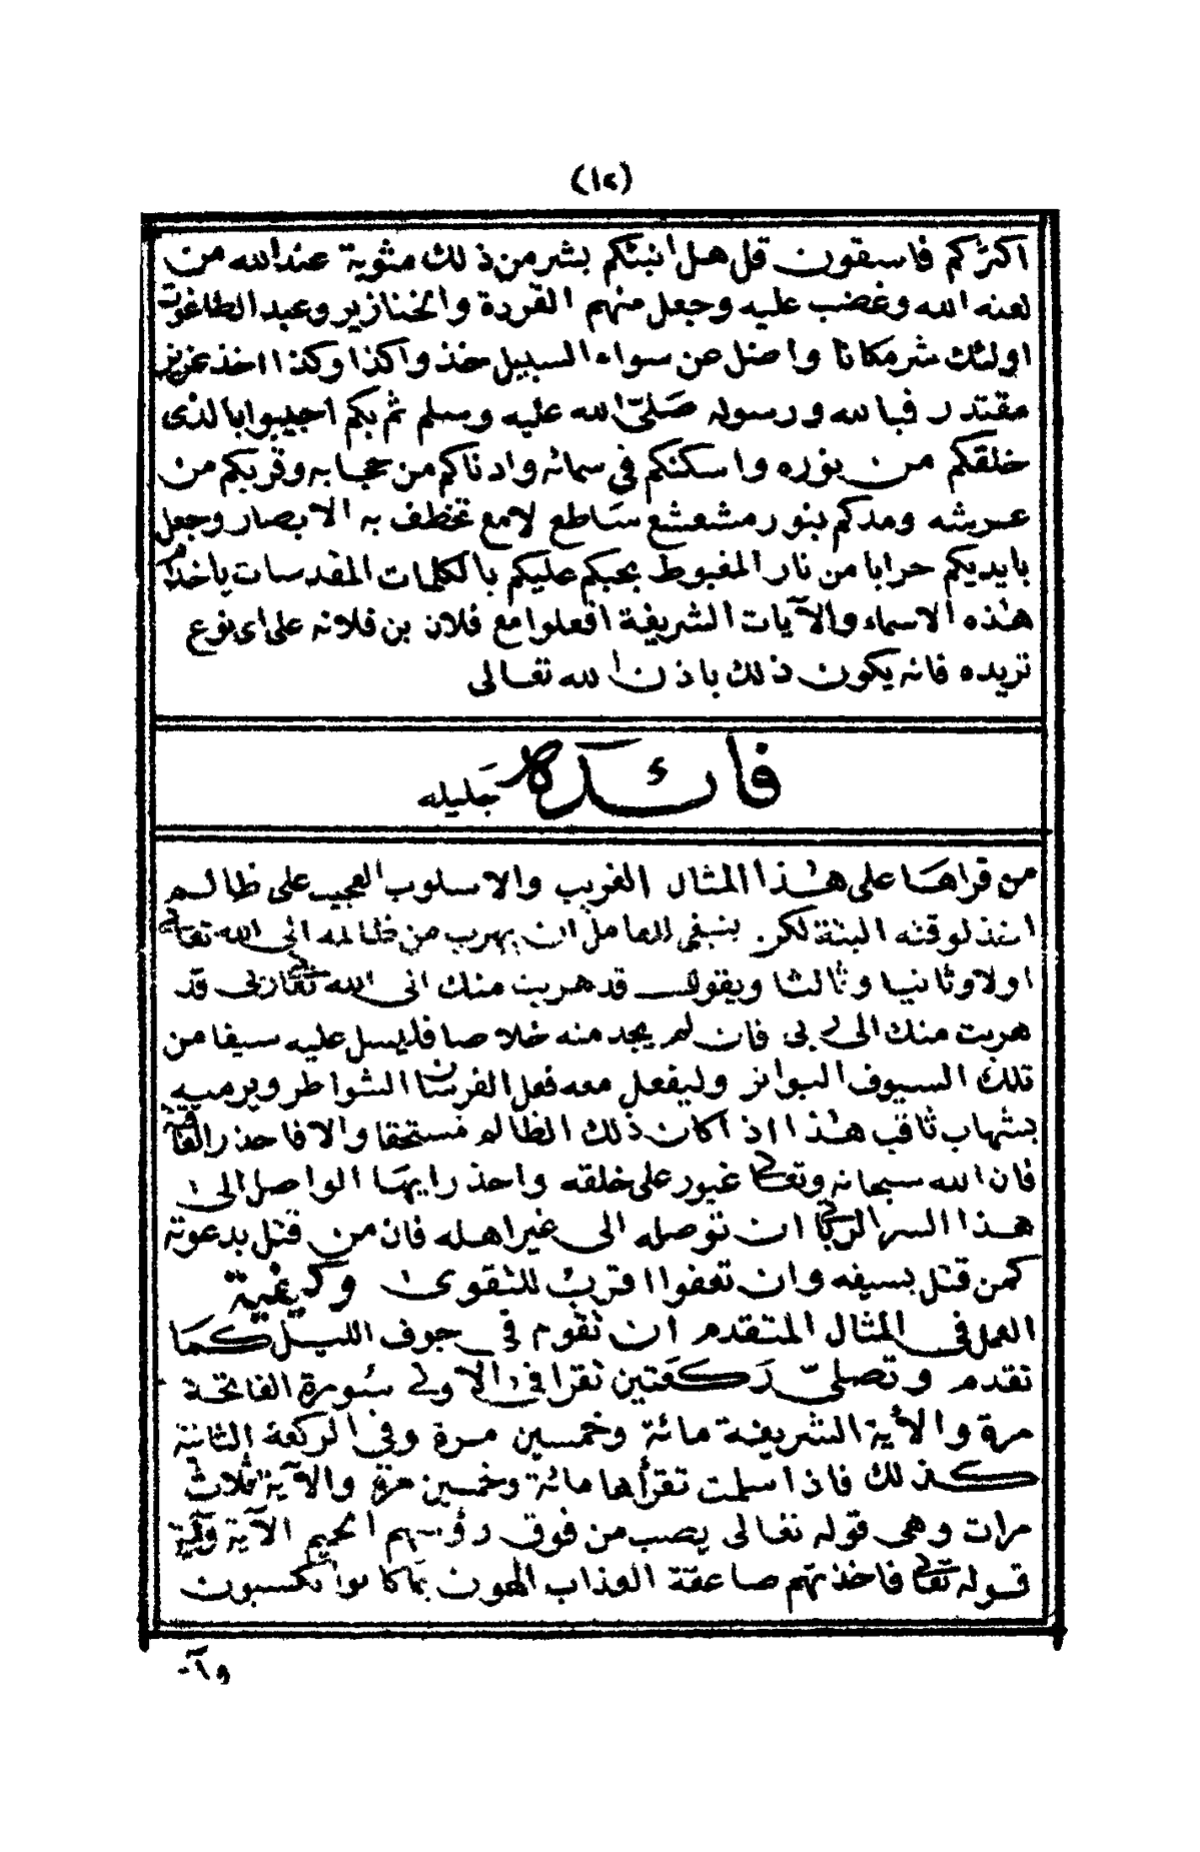 (١٢)
اكثركم فاسقون قل هل انبئكم بشر من ذلك مثوبة عند الله من
لعنه الله وغضب عليه وجعل منهم القردة والخنازير وعبد الطاغوت
اولئك شر مكانا واضل عن سواء السبيل خذوا كذا وكذا اخذ عزيز
مقتدر فبالله ورسوله صلى الله عليه وسلم ثم بكم اجيبوا بالذى
خلقكم من نوره واسكنكم فى سمائه وادناكم من حجابه وقربكم من
عرشه ومدكم بنور مشعشع ساطع لامع تخطف به الابصار وجعل
بايديكم حرابا من نار المغبوط بحبكم عليكم بالكلمات المقدسات ياخدام
هذه الاسماء والآيات الشريفة افعلوا مع فلان بن فلانه على اى نوع
تريده فانه يكون ذلك باذن الله تعالى
فائدة جليله
من قراها على هذا المثال الغريب والاسلوب العجيب على ظالم
انفذ لوقته البتة لكن ينبغى للعامل ان يهرب من ظالمه الى الله تعالى
اولا وثانيا وثالثا ويقول قد هربت منك الى الله تعالى ربى قد
هربت منك الى ربى فان لم يجد منه خلاصا فليسل عليه سيفا من
تلك السيوف البواتر وليفعل معه فعل الفرسان الشواطر ويرميه
بشهاب ثاقب هذا اذا كان ذلك الظالم مستحقا والا فاحذر
فان الله سبحانه وتعالى غيور على خلقه واحذر ايها الواصل الى
هذا السر ان توصله الى غير اهله فان من قتل بدعوته
كمن قتل بسيفه وان تعفوا اقرب للتقوى وكيفية
العمل فى المثال المتقدم ان تقوم فى جوف الليل كما
تقدم وتصلى ركعتين تقرا فى الاولى سورة الفاتحة
مرة والآية الشريفة مائة وخمسين مرة وفى الركعة الثانية
كذلك فاذا سلمت تقرأها مائة وخمسين مرة والآية ثلاث
مرات وهى قوله تعالى يصب من فوق رؤسهم الحميم الآية وآية
قوله تعالى فاخذتهم صاعقة العذاب الهون بما كانوا يكسبون